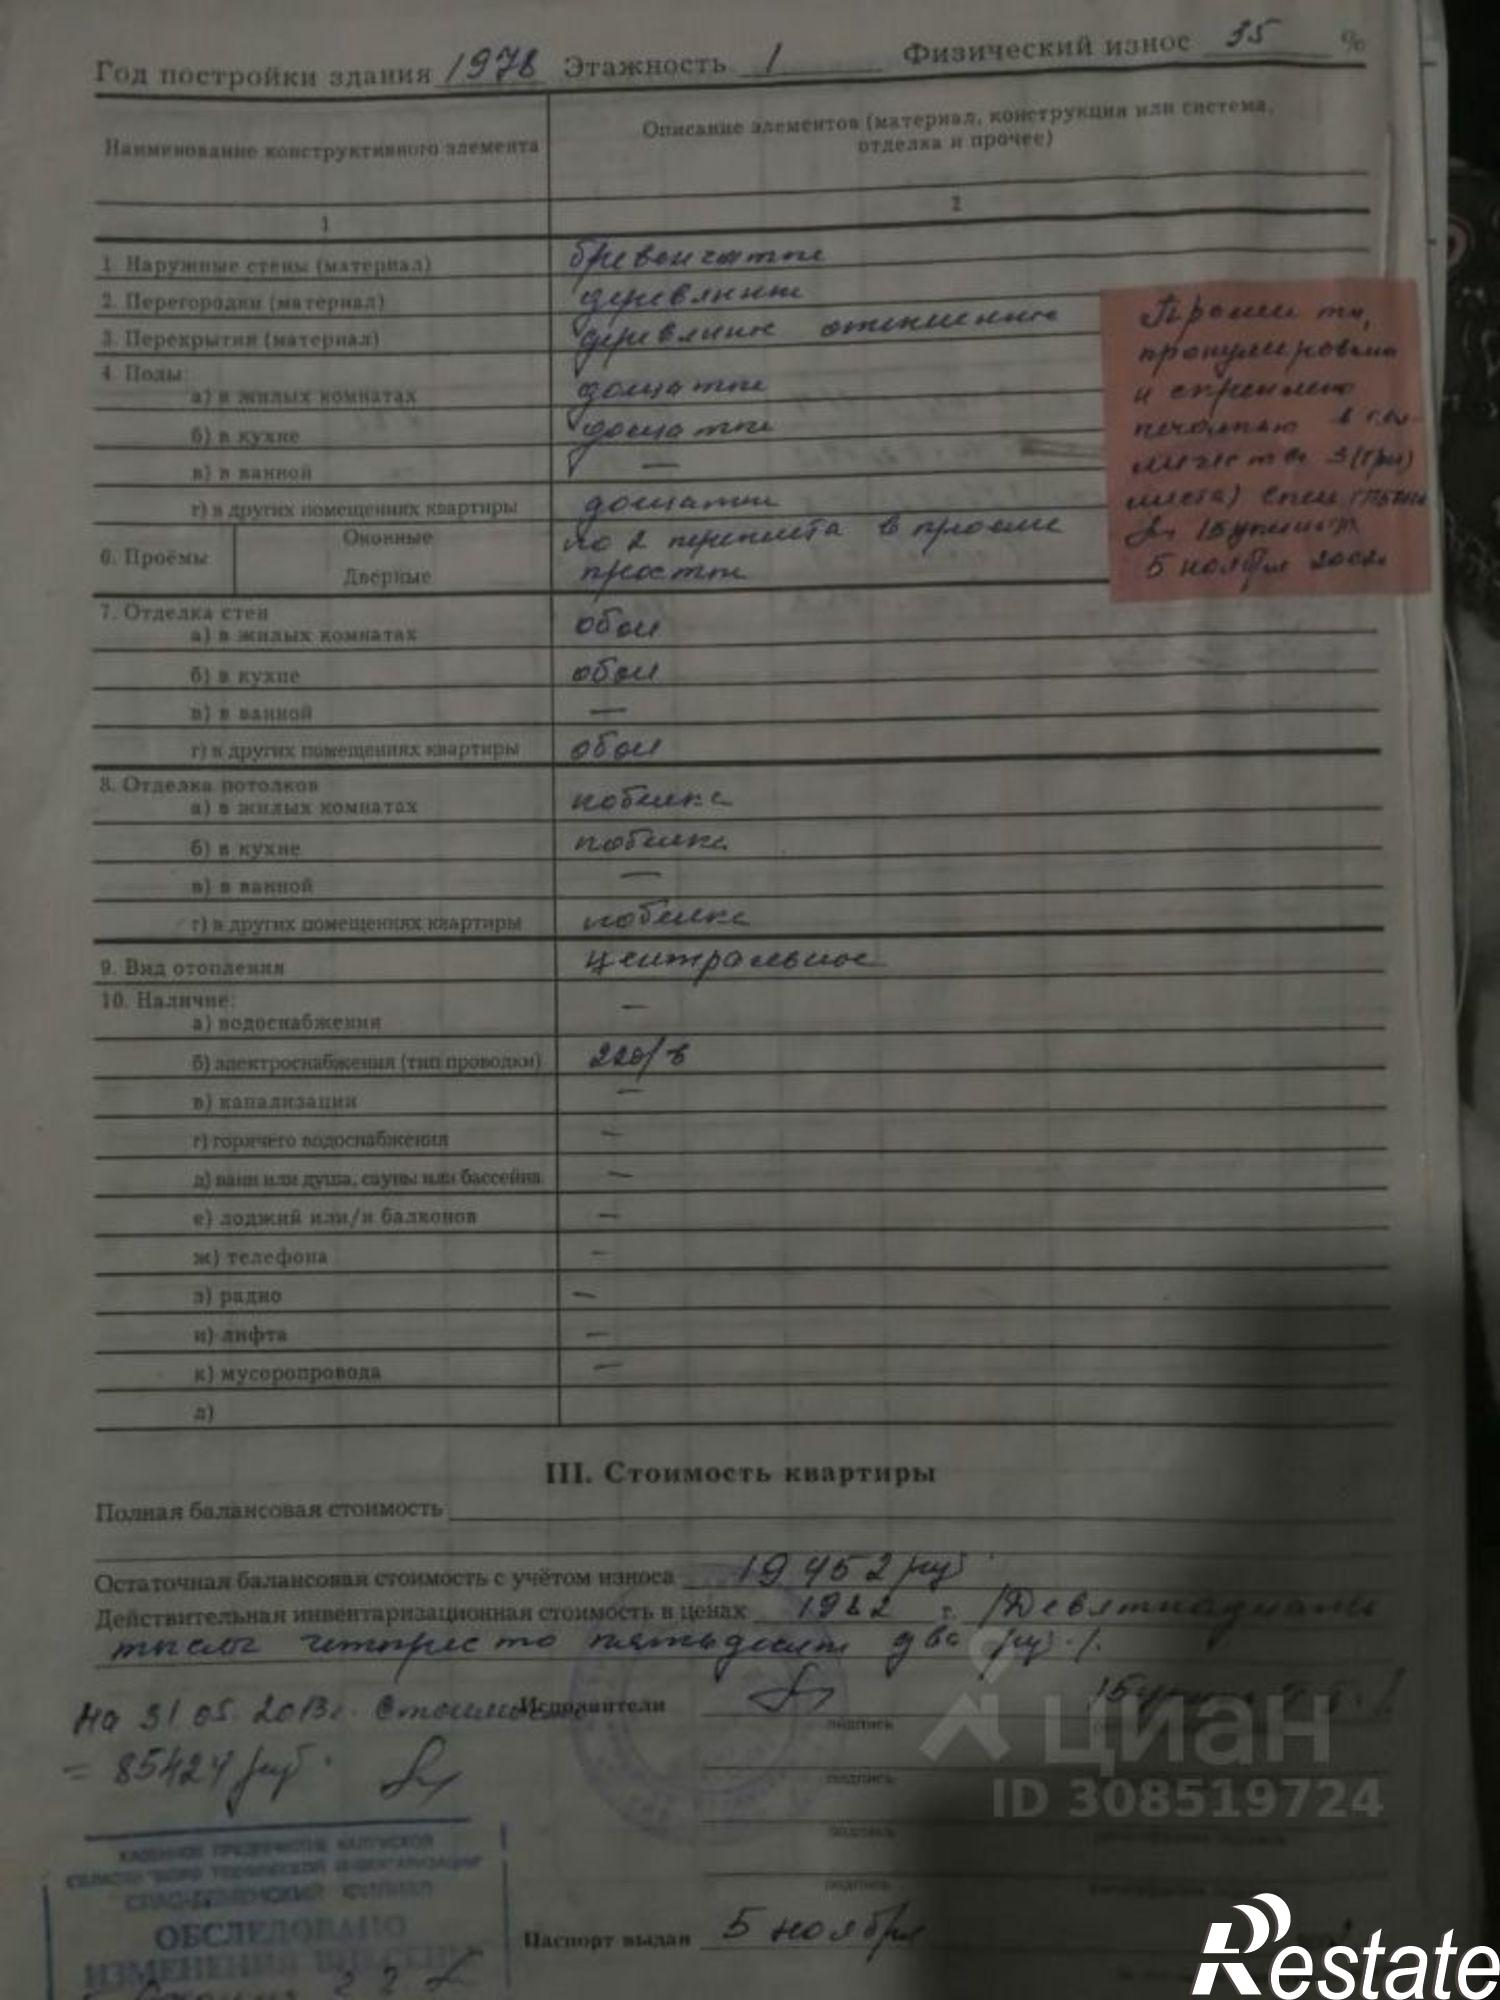 Год постройки здания 1978 Этажность 1 Физический износ 35 %
Наименование конструктивного элемента
Описание элементов (материал, конструкция или система, отделка и прочее)
1 2
1. Наружные стены (материал) бревенчатые
2. Перегородки (материал) деревянные
3. Перекрытия (материал) деревянное отепленное
4. Полы:
а) в жилых комнатах дощатые
б) в кухне дощатые
в) в ванной —
г) в других помещениях квартиры дощатые
6. Проёмы Оконные по 2 переплета в проеме
Дверные простые
7. Отделка стен
а) в жилых комнатах обои
б) в кухне обои
в) в ванной —
г) в других помещениях квартиры обои
8. Отделка потолков
а) в жилых комнатах побелка
б) в кухне побелка
в) в ванной —
г) в других помещениях квартиры побелка
9. Вид отопления центральное
10. Наличие:
а) водоснабжения —
б) электроснабжения (тип проводки) 220/в
в) канализации —
г) горячего водоснабжения —
д) ванн или душа, сауны или бассейна —
е) лоджий или/и балконов —
ж) телефона —
з) радио —
и) лифта —
к) мусоропровода —
л)
Прошито,
пронумеровано
и скреплено
печатью в кол-
личестве 3 (три)
листа)
5 ноября 2002г
III. Стоимость квартиры
Полная балансовая стоимость
Остаточная балансовая стоимость с учётом износа 19452 руб.
Действительная инвентаризационная стоимость в ценах г. /Девятнадцать
тысяч четыреста пятьдесят два руб./.
На 31 05. 2013г. Стоимость
= 85424 руб.
Исполнители
подпись
подпись
подпись
подпись
КАЗЕННОЕ ПРЕДПРИЯТИЕ КАЛУЖСКОЙ
ОБЛАСТИ "БЮРО ТЕХНИЧЕСКОЙ ИНВЕНТАРИЗАЦИИ"
СПАС-ДЕМЕНСКИЙ ФИЛИАЛ
ОБСЛЕДОВАНО
ИЗМЕНЕНИЯ ВНЕСЕНЫ
Паспорт выдан 5 ноября
циан
ID 308519724
Restate